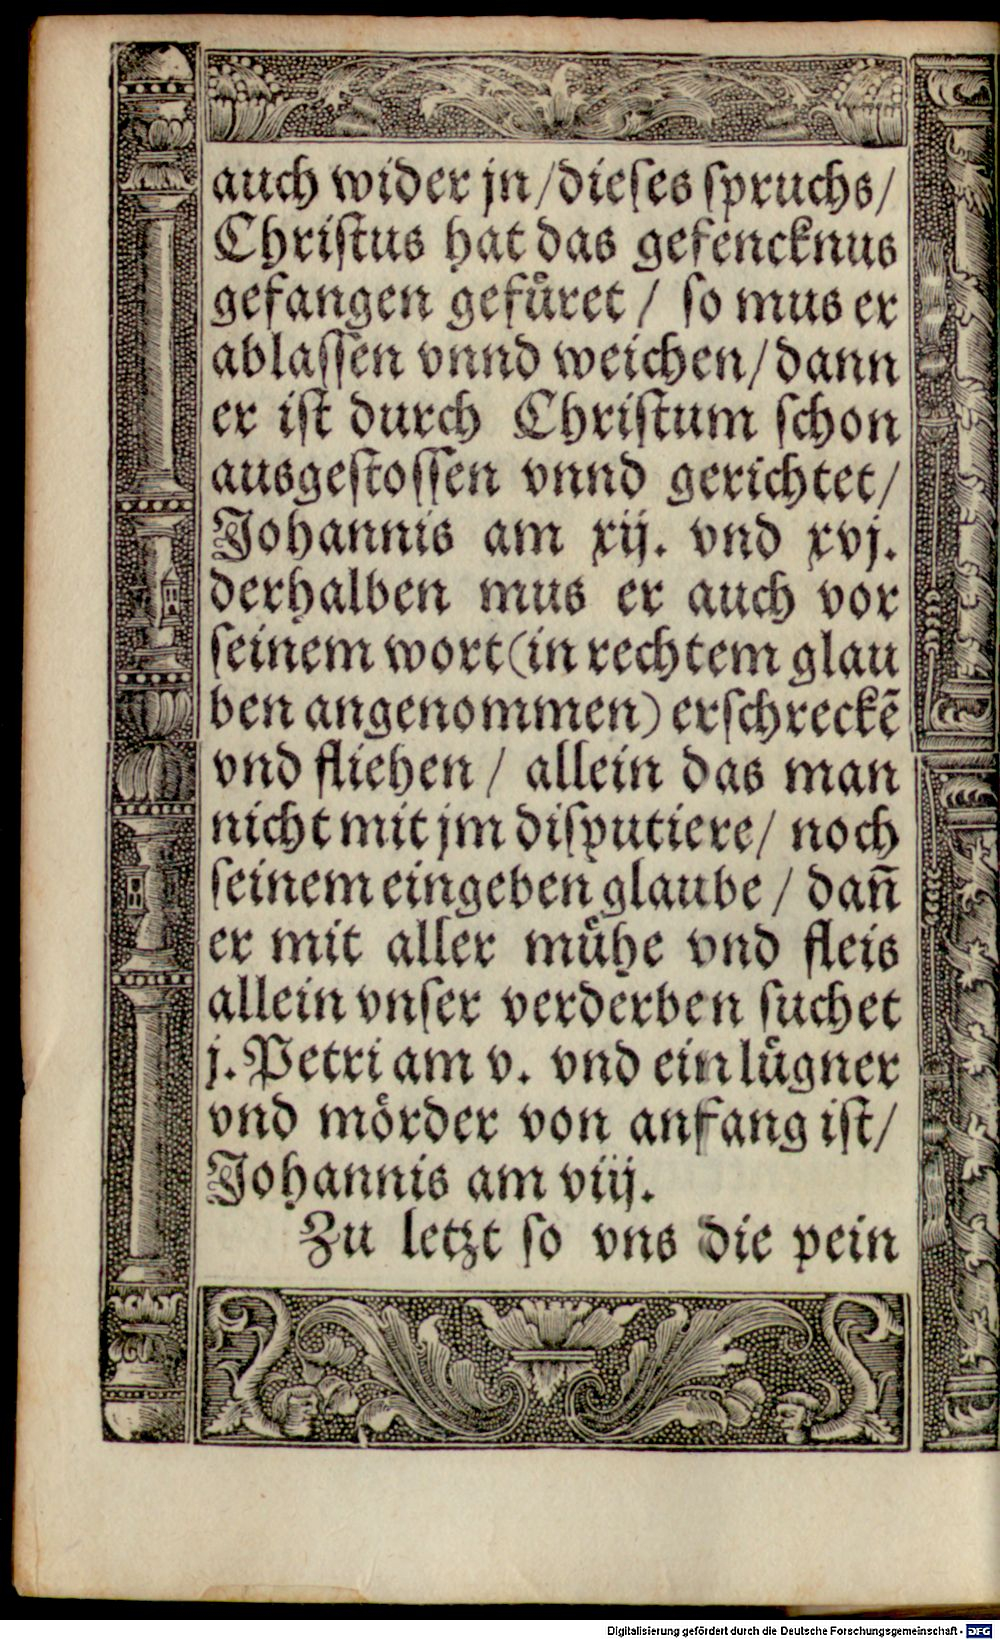 auch wider jn / dieses spruchs /
Christus hat das gefencknus
gefangen gefüret / so mus er
ablassen vnnd weichen / dann
er ist durch Christum schon
ausgestossen vnnd gerichtet /
Johannis am xij. vnd xvj.
derhalben mus er auch vor
seinem wort (in rechtem glau
ben angenommen) erschreckē
vnd fliehen / allein das man
nicht mit jm disputiere / noch
seinem eingeben glaube / dan̄
er mit aller mühe vnd fleis
allein vnser verderben suchet
j. Petri am v. vnd ein lügner
vnd mörder von anfang ist /
Johannis am viij.
Zu letzt so vns die pein
Digitalisierung gefördert durch die Deutsche Forschungsgemeinschaft - DFG